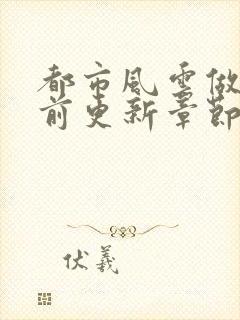 都市風雲做
前更新章節
伏羲